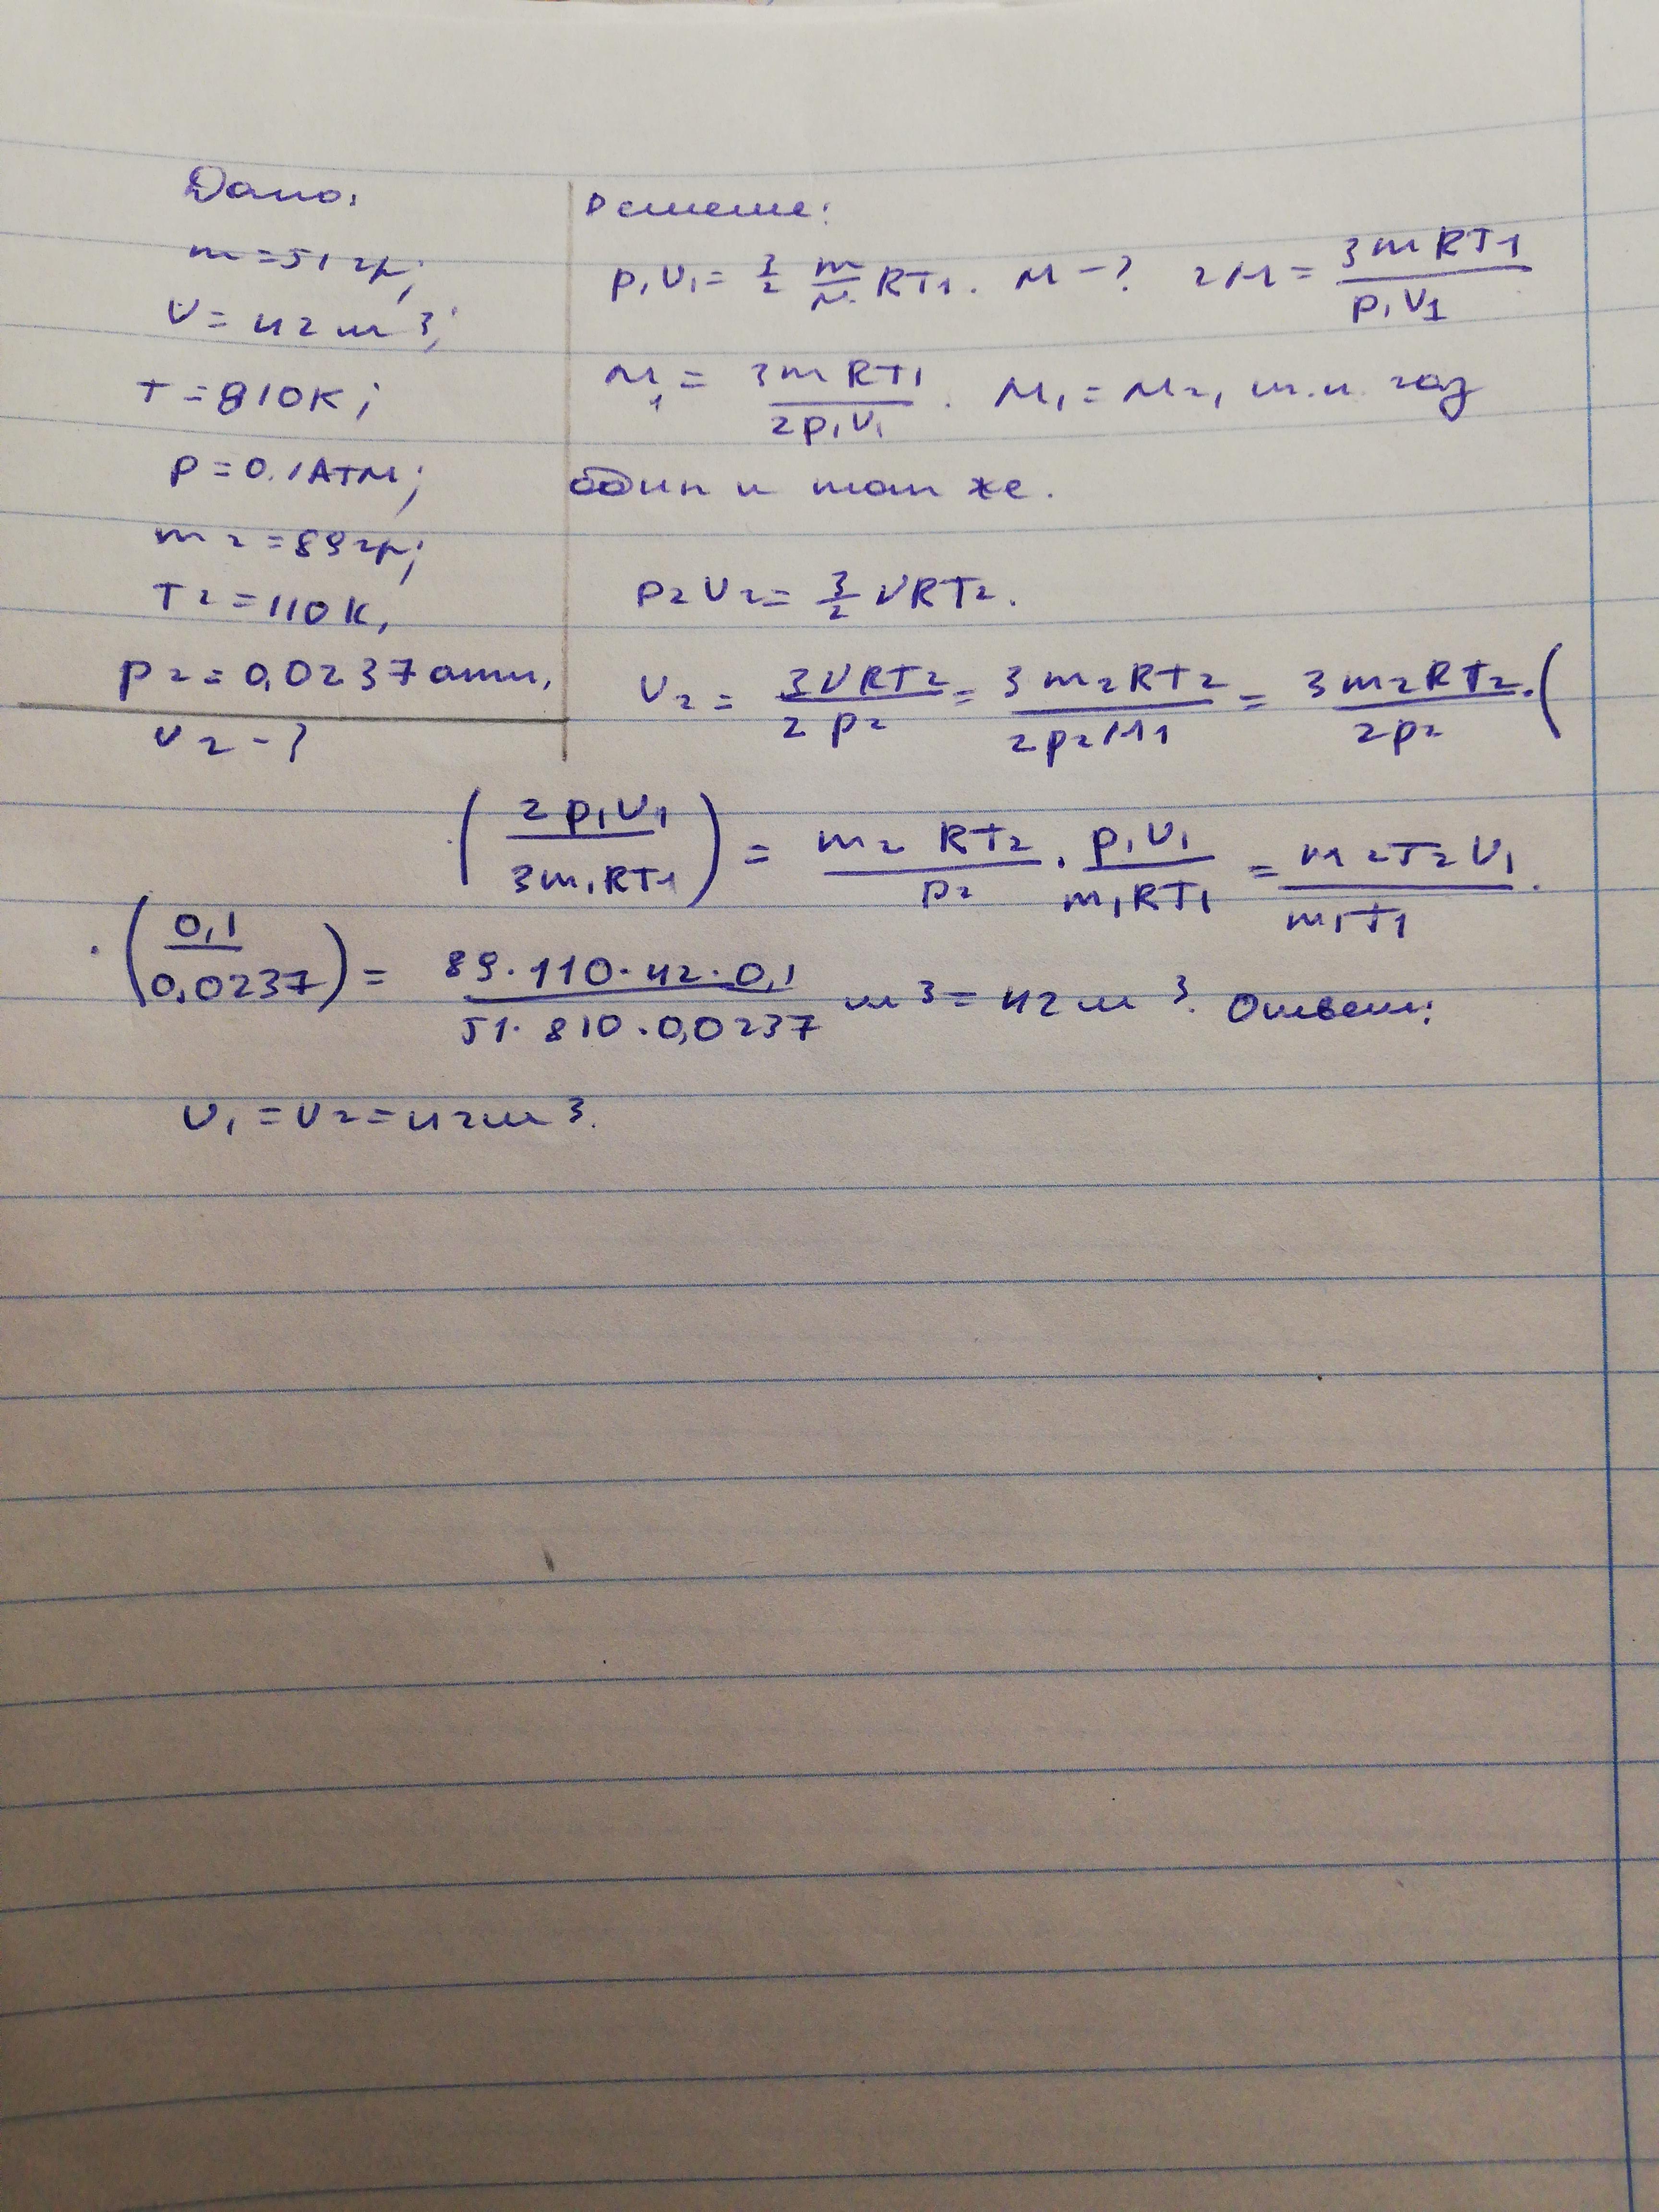 Дано:
m = 51 гр;
V = 42 м^3;
T = 810K;
P = 0.1 АТМ;
m2 = 89 гр;
T2 = 110 K,
p2 = 0,0237 атм,
V2 - ?
Решение:
p1V1 = 3/2 m/M RT1. M - ? 2M = 3mRT1/p1V1
M1 = 3mRT1/2p1V1. M1 = M2, т.к. газ
один и тот же.
p2V2 = 3/2 νRT2.
V2 = 3νRT2/2p2 = 3m2RT2/2p2M1 = 3m2RT2/2p2 · (
· (2p1V1/3m1RT1) = m2RT2/p2 · p1V1/m1RT1 = m2T2V1/m1T1 ·
· (0,1/0,0237) = 89·110·42·0,1/51·810·0,0237 м^3 = 42 м^3. Ответ:
V1 = V2 = 42 м^3.